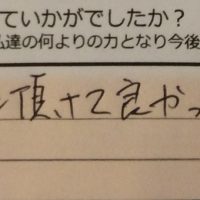 ていかがでしたか?
私達の何よりの力となり今後
頂けて良かっ